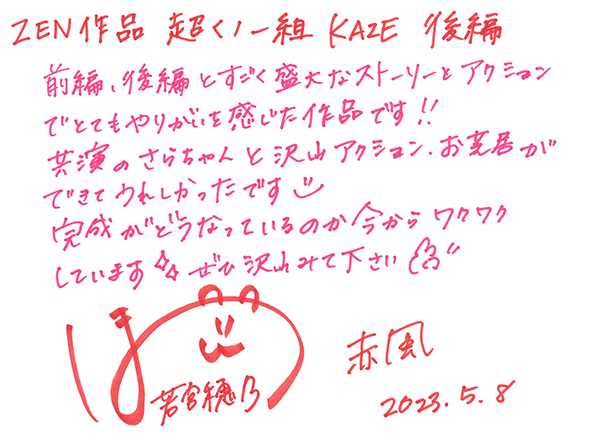 ZEN作品 超くノ一組 KAZE 後編
前編、後編とすごく盛大なストーリーとアクション
でとてもやりがいを感じた作品です!!
共演のさらちゃんと沢山アクション、お芝居が
できてうれしかったです
完成がどうなっているのか今からワクワク
しています ぜひ沢山みて下さい
ほ
若宮穂乃
赤風
2023.5.8